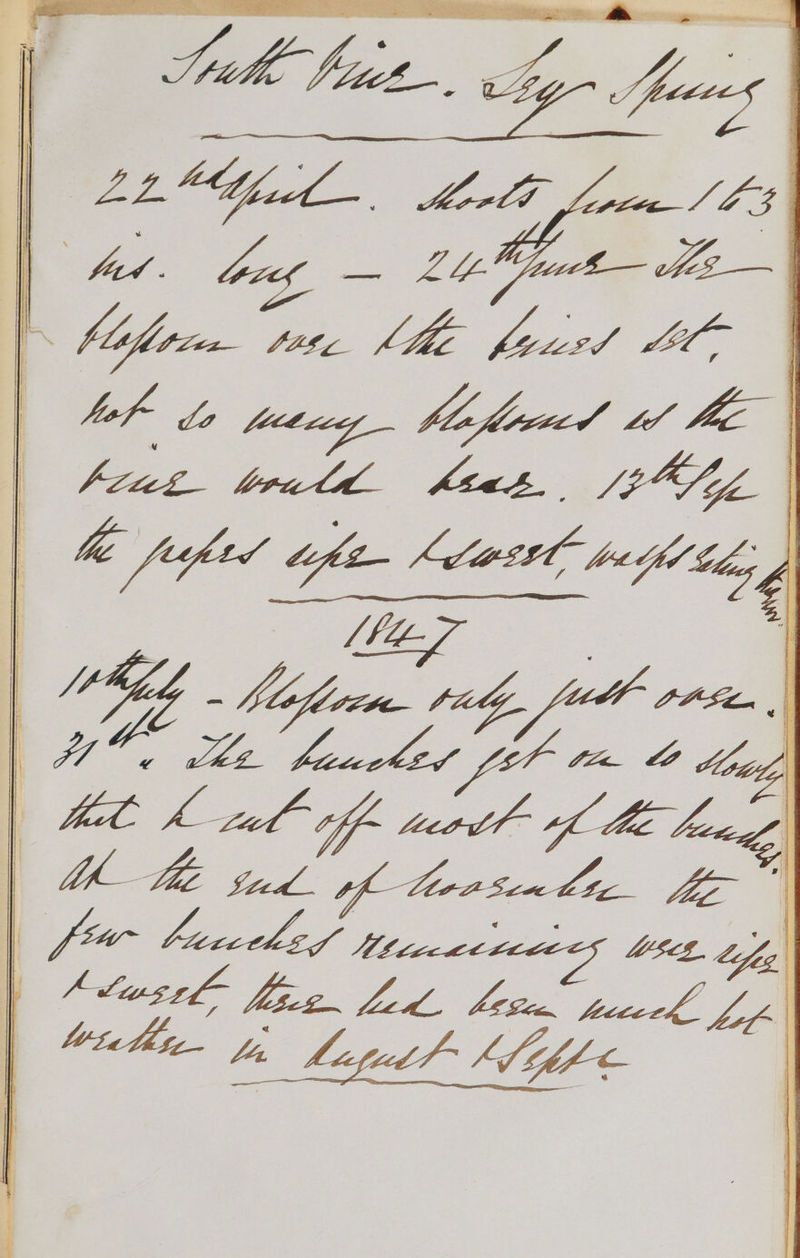 South Vine. Dry Spring
22nd April. shoots from 1 to 3
ins. long — 24th June The
blossom over & the berries set,
not so many blossoms as the
vine would bear. 13th Sep
the grapes ripe & sweet, wasps eating them.
1847
10th July - Blossom only just over.
31st " The bunches get on so slowly
that I cut off most of the bunches.
At the end of November the
few bunches remaining were ripe
& sweet, there had been much hot
weather in August & Septr